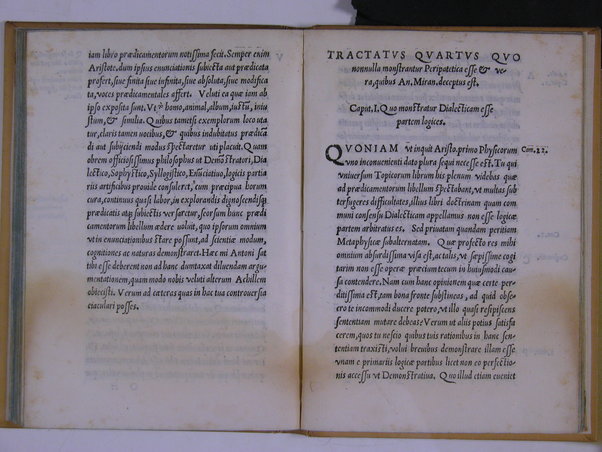 iam libro prædicamentorum notissima fecit. Semper enim
Aristote. dum ipsus enunciationis subiecta aut prædicata
profert, siue finita siue infinita, siue absoluta, siue modifica
ta, voces prædicamentales affert. Veluti ea quæ iam ab
ipso exposita sunt. Vt homo, animal, album, iustũ, iniu
stum, & similia. Quibus tametsi exemplorum loco uta
tur, claris tamen uocibus, & quibus indubitatus prædica
di aut subijciendi modus spectaretur uti placuit. Quam
obrem officiosissimus philosophus ut Demostratori, Dia
lectico, Sophystico, Syllogistico, Enũciatiuo, logicis partia
riis artificibus prouide consuleret, cum præcipua horum
cura, continuus quasi labor, in explorandis dignoscendisq;
prædicatis atq; subiectis versaretur, seorsum hunc prædi
camentorum libellum ædere uoluit, quo ipsorum omnium
vt in enunciationibus stare possunt, ad scientiæ modum,
cognitiones ac naturas demonstraret. Hæc mi Antoni sat
tibi esse deberent non ad hanc dumtaxat diluendam argu
mentationem, quam modo nobis veluti alterum Achillem
obiecisti. Verum ad cæteras quas in hac tua controuersia
eiaculari posses.
TRACTATVS QVARTVS QVO
nonnulla monstrantur Peripatetica esse & ve
ra, quibus An. Miran. deceptus est.
Caput. I. Quo monstratur Dialecticam esse
partem logices.
QVONIAM vt inquit Aristo. primo Physicorum
vno inconuenienti dato plura sequi necesse est. Tu qui
vniuersum Topicorum librum his plenum videbas quæ
ad prædicamentorum libellum spectabant, vt multas sub
terfugeres difficultates, illius libri doctrinam quam com
muni consensu Dialecticam appellamus non esse logicæ
partem arbitratus es. Sed priuatam quandam peritiam
Metaphysicæ subalternatam. Quæ profecto res mihi
omnium absurdissima visa est, ac talis, vt sæpissime cogi
tarim non esse operæ præcium tecum in huiusmodi cau
sa contendere. Nam cum hanc opinionem quæ certe per
ditissima est, tam bona fronte substineas, ad quid obse
cro te incommodi ducere potero, vt illo quasi resipiscens
sententiam mutare debeas? Verum ut aliis potius satisfa
cerem, quos tu nescio quibus tuis rationibus in hanc sen
tentiam traxisti, volui breuibus demonstrare illam esse
vnam e primariis logicæ partibus licet non eo perfectio
nis accessu vt Demonstratiua. Quo illud etiam eueniet
Com. 22.